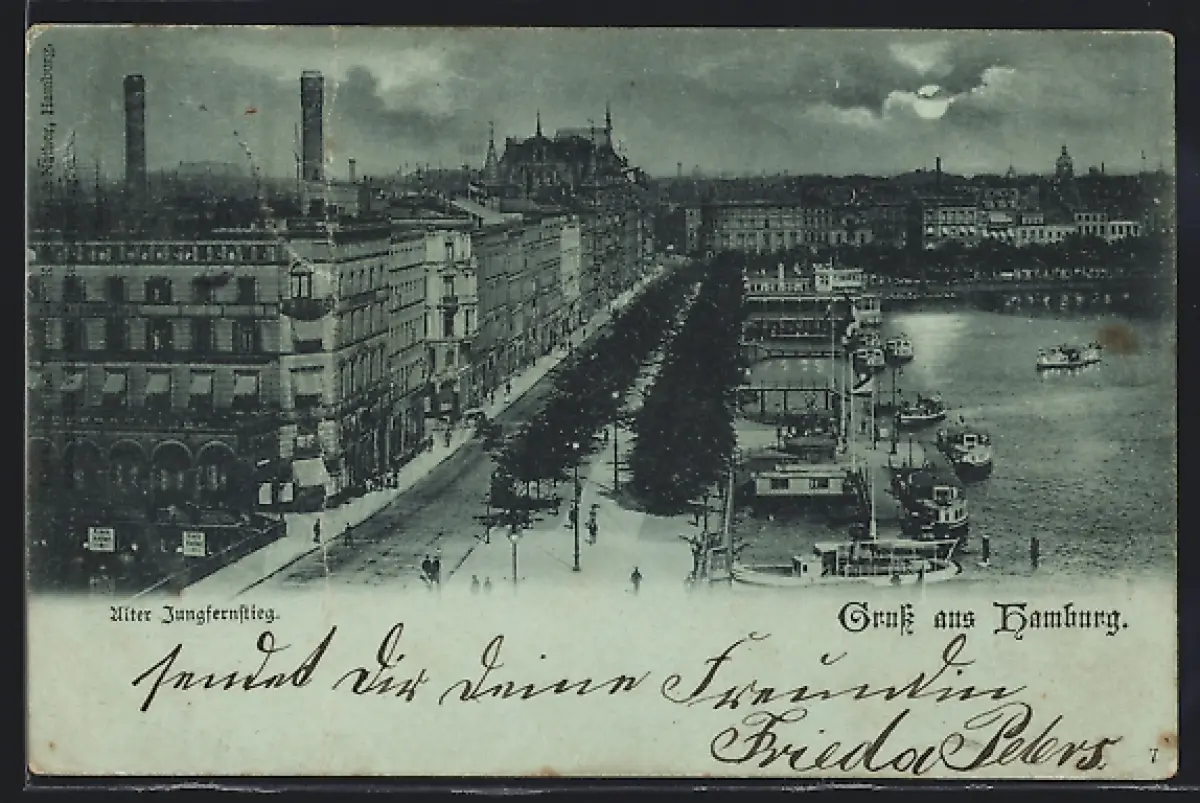 Hamburg.
Alter Jungfernstieg.
Gruß aus Hamburg.
sendet Dir Deine Freundin
Frieda Peters.
7